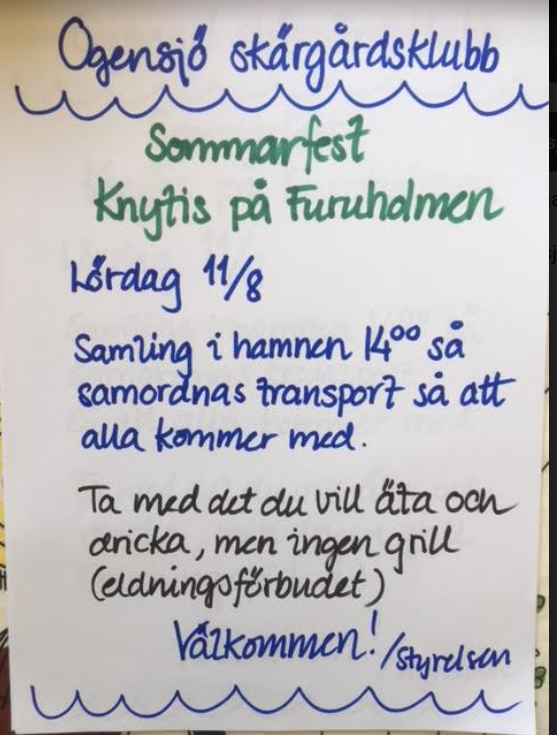 Ogensjö skärgårdsklubb
Sommarfest
Knytis på Furuholmen
Lördag 11/8
Samling i hamnen 14⁰⁰ så
samordnas transport så att
alla kommer med.
Ta med det du vill äta och
dricka, men ingen grill
(eldningsförbudet)
Välkommen! /Styrelsen